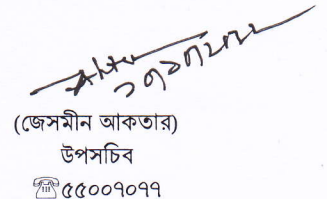 (জেসমীন আকতার)
উপসচিব
☎৫৫০০৭০৭৭